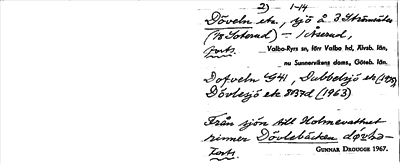 2) 1-14
Döveln etc., sjö å 3 Strömsäter
(16 Soterud) — 1 Åserud,
forts. Valbo-Ryrs sn, förr Valbo hd, Älvsb. län,
nu Sunnervikens doms, Göteb. län.
Dofveln G41, Dubbelsjö ek (1938)
Dövlesjö ek 8B7d (1963)
Från sjön till Holmevattnet
rinner Dövlebäcken
Forts. GUNNAR DROUGGE 1967.